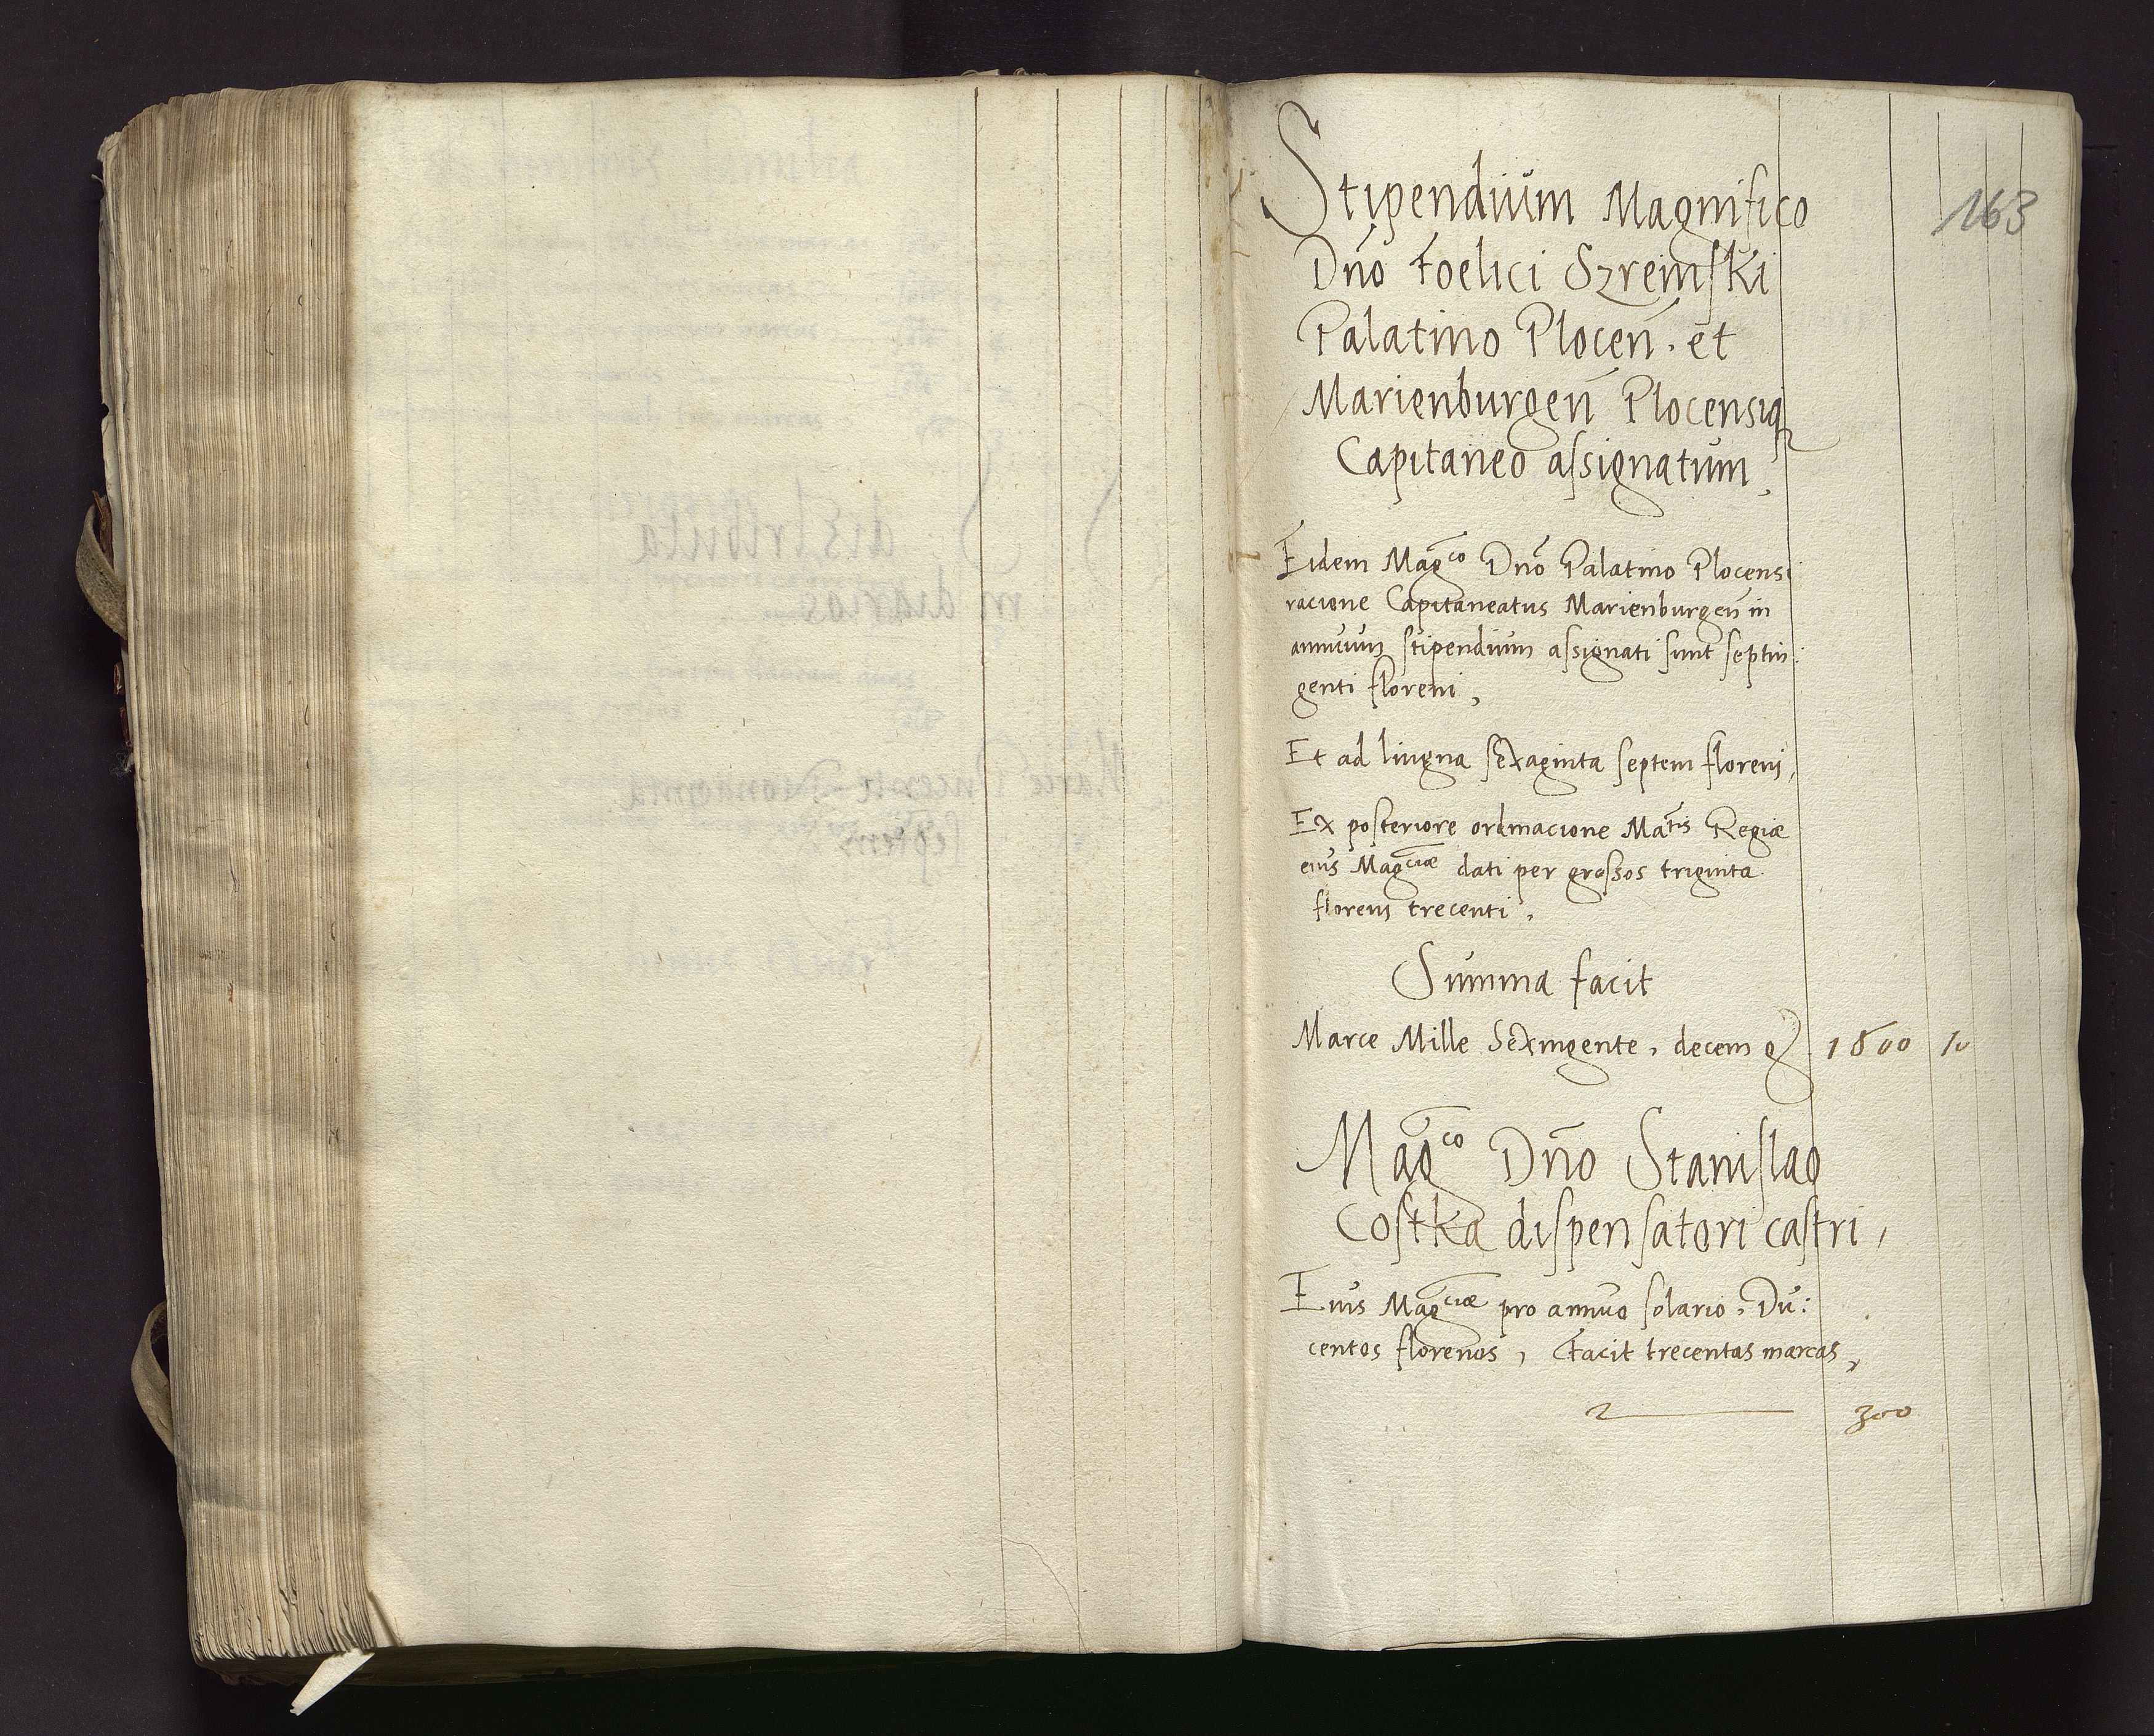 163
Stipendium Magnifico
Dno Foelici Szreinski
Palatino Plocen. et
Marienburgen Plocensiq
Capitaneo assignatum,
Eidem Magco Dno Palatino Plocensi
racione Capitaneatus Marienburgen in
annuum stipendium assignati sunt septin:
genti floreni,
Et ad lingna sexaginta septem floreni,
Ex posteriore ordinacione Matis Regiæ
eius Magciæ dati per grossos triginta
floreni trecenti,
Summa facit
Marce Mille Sexingente, decem g 1600 10
Magco Dno Stanislao
Costka dispensatori castri,
Eius Magciæ pro annuo solario, Du:
centos florenos, Facit trecentas marcas,
300